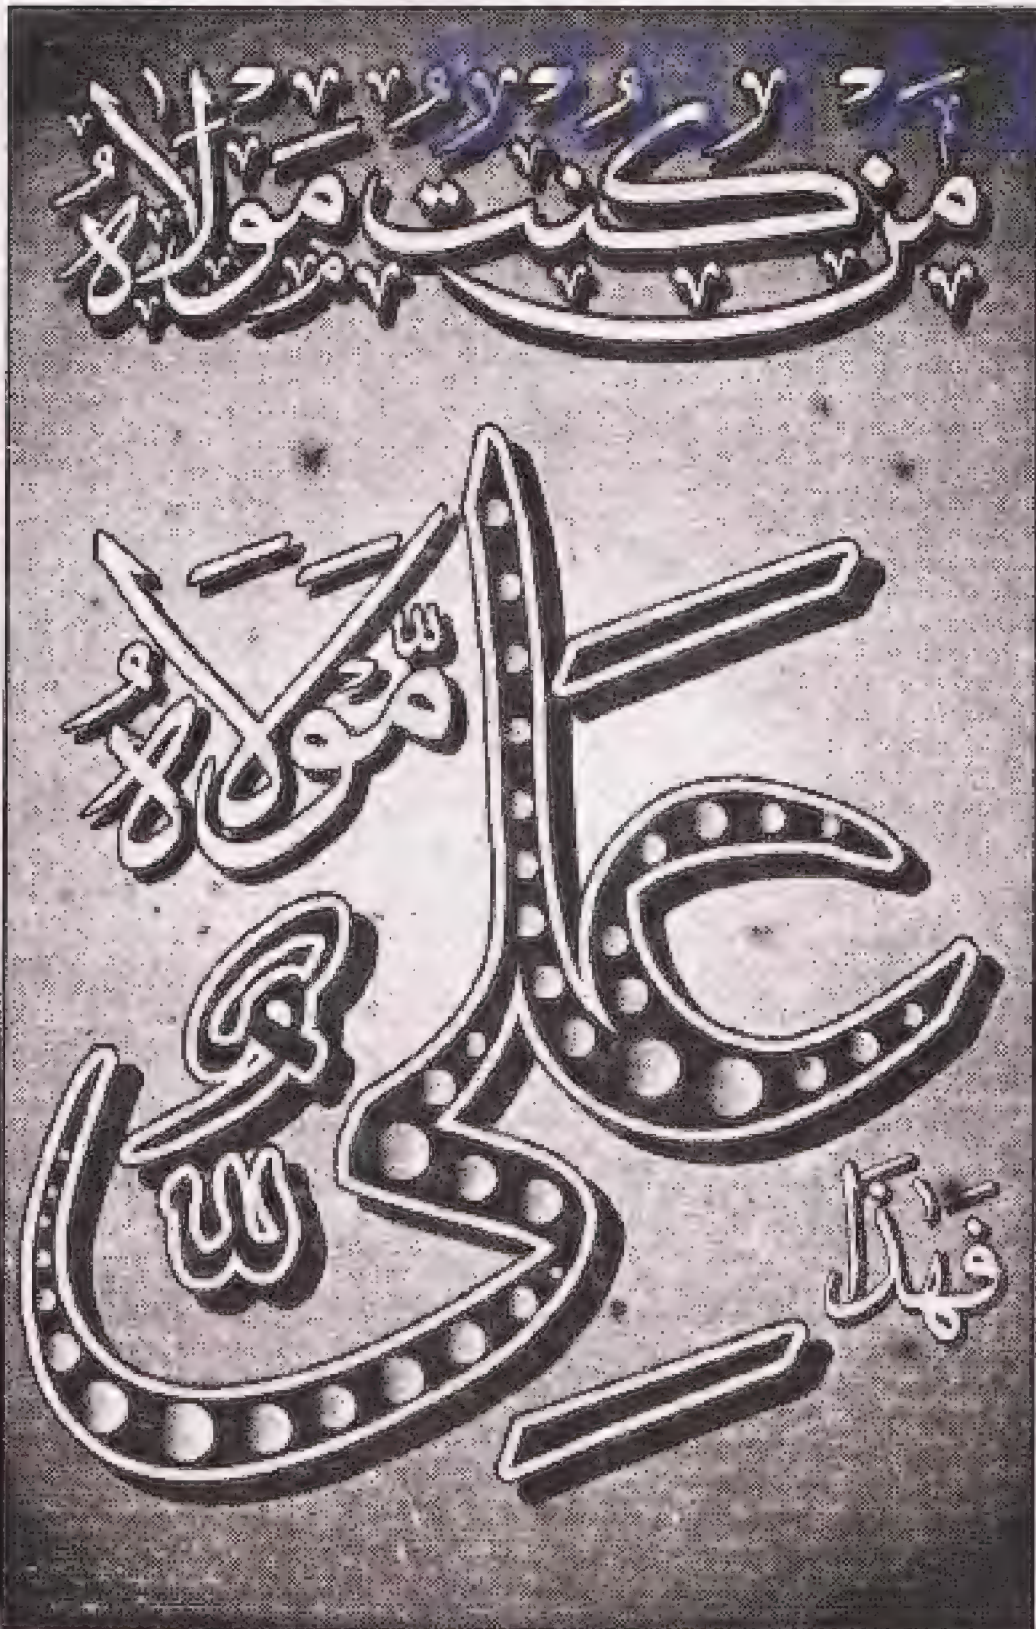 مَنْ كُنْتُ مَوْلَاهُ
فَهٰذَا عَلِيٌّ مَّوْلَاهُ